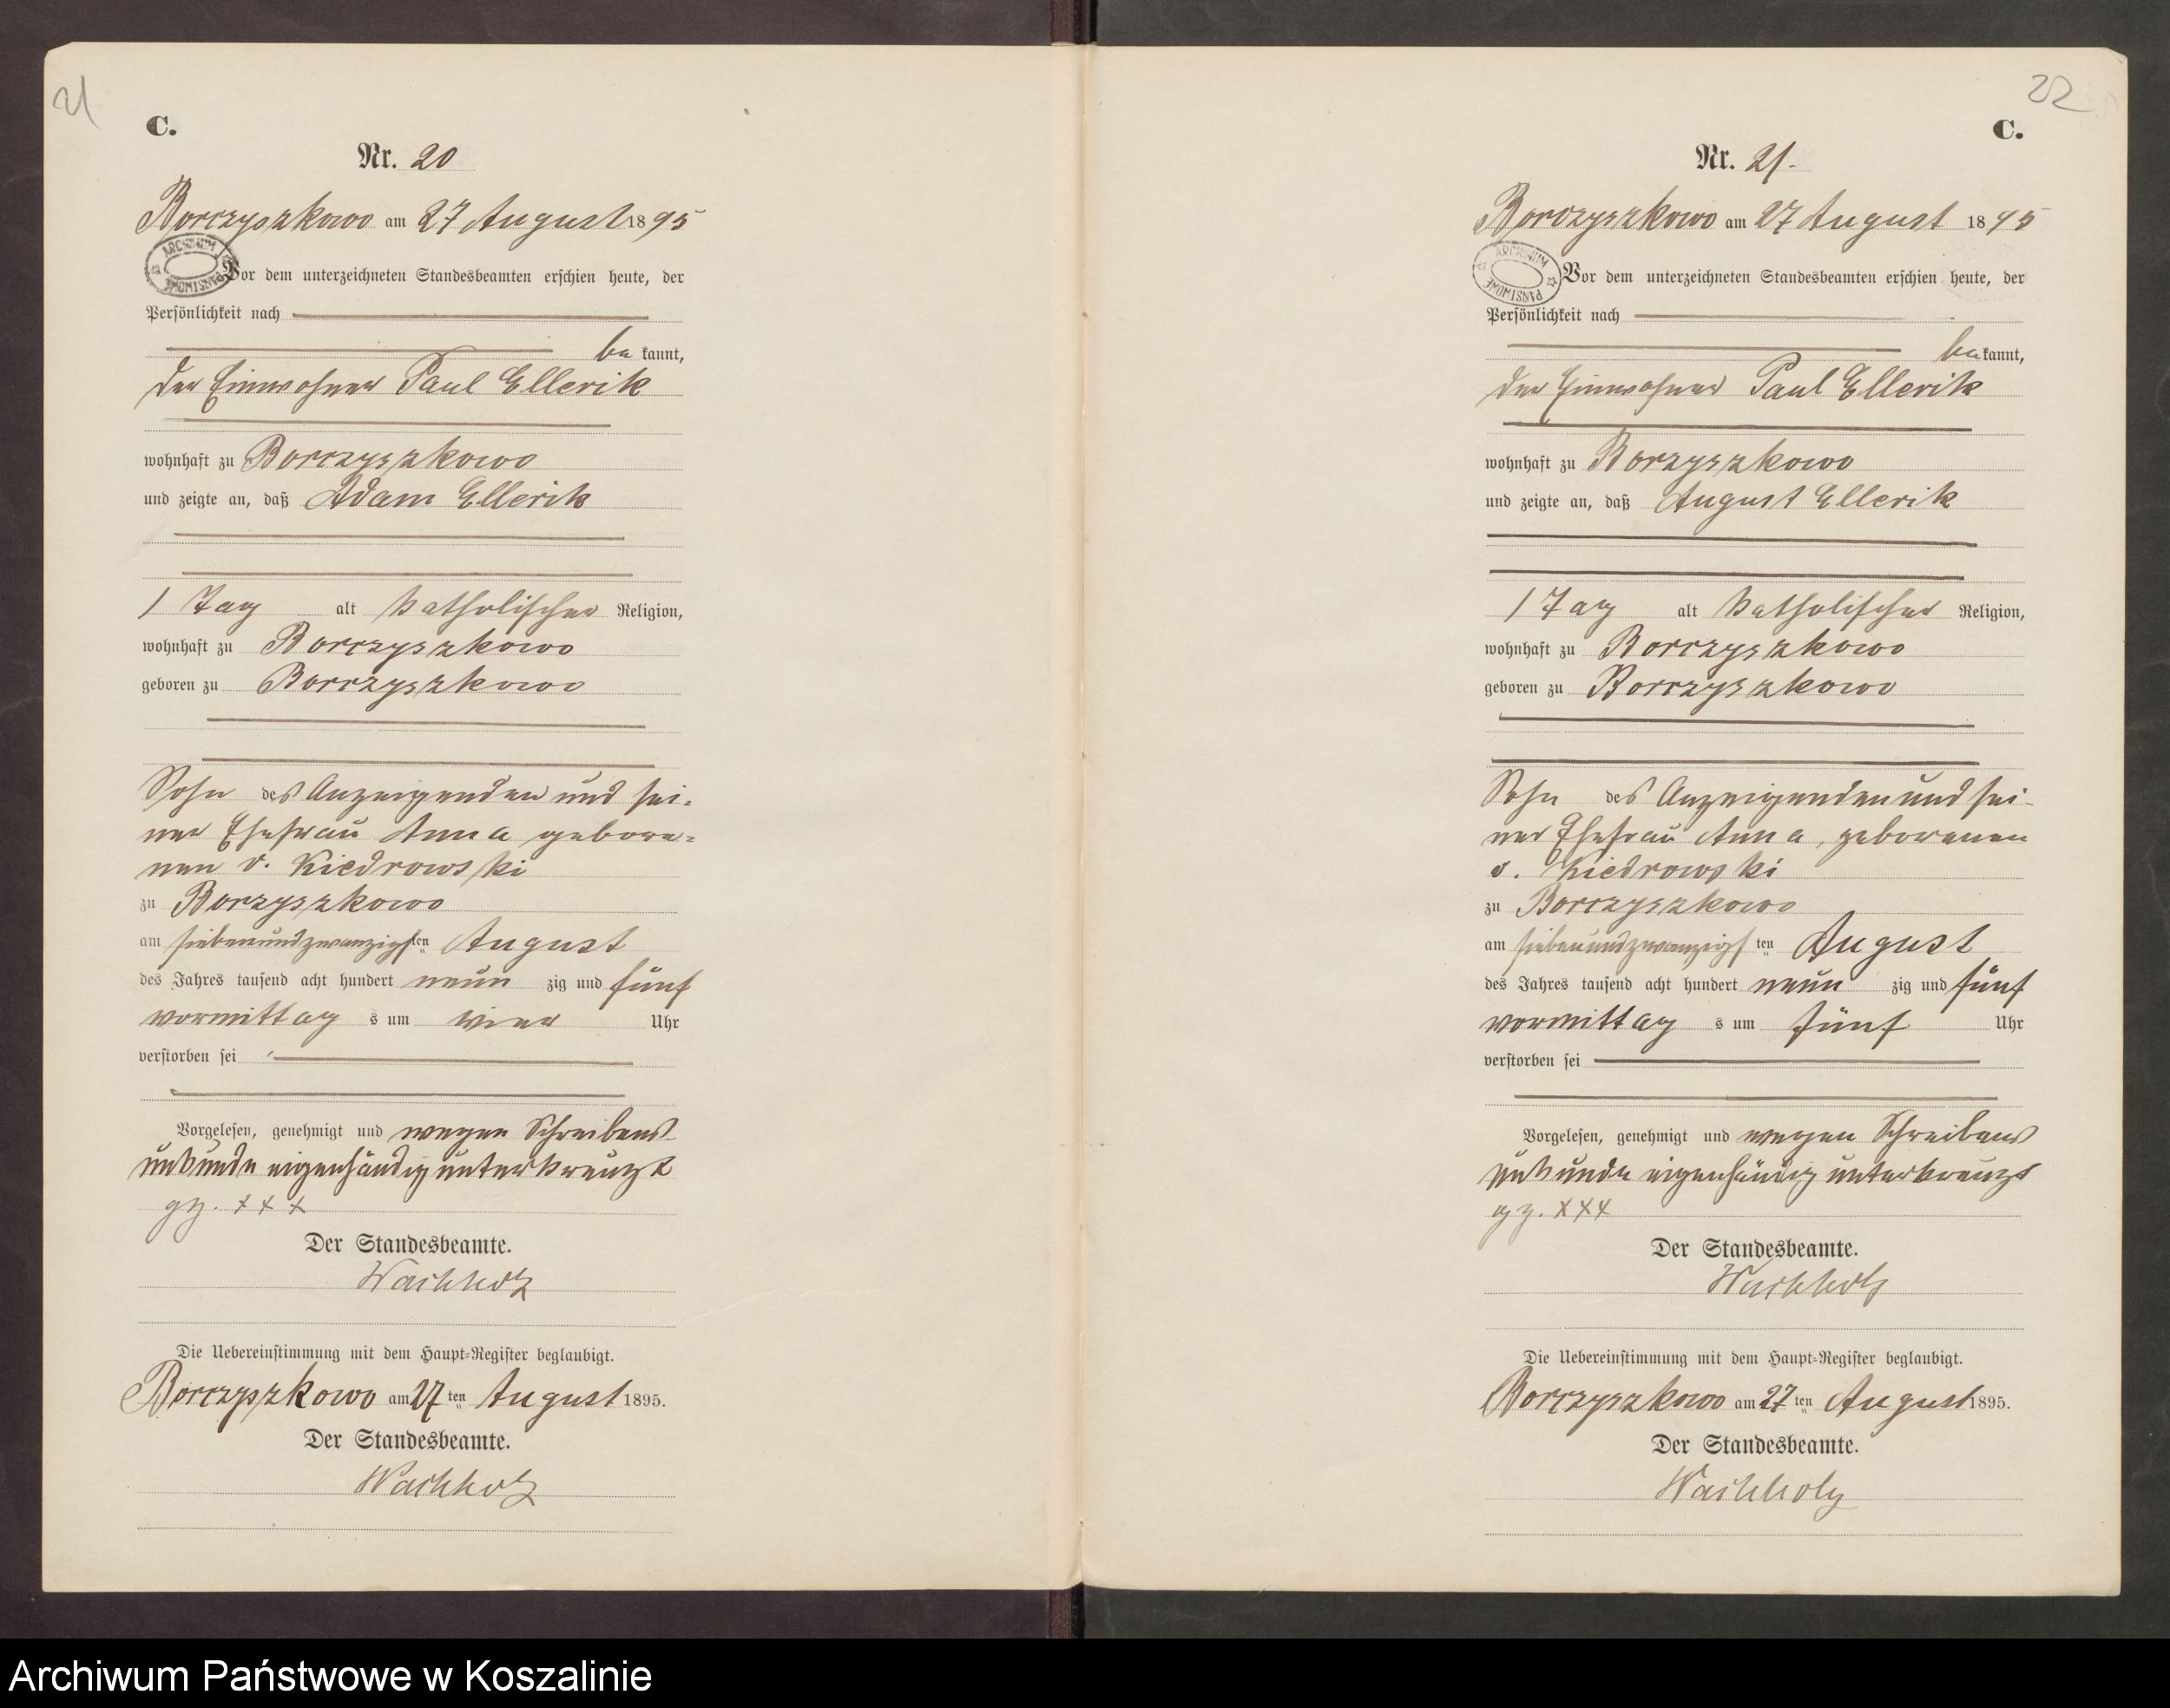 21
C.
Nr. 20
Borczyszkowo am 27 August 1895
ARCHIWUM PAŃSTWOWE
Vor dem unterzeichneten Standesbeamten erschien heute, der
Persönlichkeit nach
be kannt,
der Einwohner Paul Ellerik
wohnhaft zu Borczyszkowo
und zeigte an, daß Adam Ellerik
1 Tag alt katholischer Religion,
wohnhaft zu Borczyszkowo
geboren zu Borczyszkowo
Sohn des Anzeigenden und sei-
ner Ehefrau Anna gebore-
nen v. Kiedrowski
zu Borzyszkowo
am siebenundzwanzigsten August
des Jahres tausend acht hundert neun zig und fünf
vormittag s um vier Uhr
verstorben sei
Vorgelesen, genehmigt und wegen Schreibens-
unkunde eigenhändig unterkreuzt
gz. xxx
Der Standesbeamte.
Wachholz
Die Uebereinstimmung mit dem Haupt-Register beglaubigt.
Borczyszkowo am 27 ten August 1895.
Der Standesbeamte.
Wachholz
22
C.
Nr. 21.
Borczyszkowo am 27 August 1895
ARCHIWUM PAŃSTWOWE
Vor dem unterzeichneten Standesbeamten erschien heute, der
Persönlichkeit nach
be kannt,
der Einwohner Paul Ellerik
wohnhaft zu Borzyszkowo
und zeigte an, daß August Ellerik
1 Tag alt katholischer Religion,
wohnhaft zu Borczyszkowo
geboren zu Borczyszkowo
Sohn des Anzeigenden und sei-
ner Ehefrau Anna, geborenen
v. Kiedrowski
zu Borczyszkowo
am siebenundzwanzigs ten August
des Jahres tausend acht hundert neun zig und fünf
vormittag s um fünf Uhr
verstorben sei
Vorgelesen, genehmigt und wegen Schreibens
unkunde eigenhändig unterkreuzt
gz. xxx
Der Standesbeamte.
Wachholz
Die Uebereinstimmung mit dem Haupt-Register beglaubigt.
Borczyszkowo am 27 ten August 1895.
Der Standesbeamte.
Wachholz
Archiwum Państwowe w Koszalinie